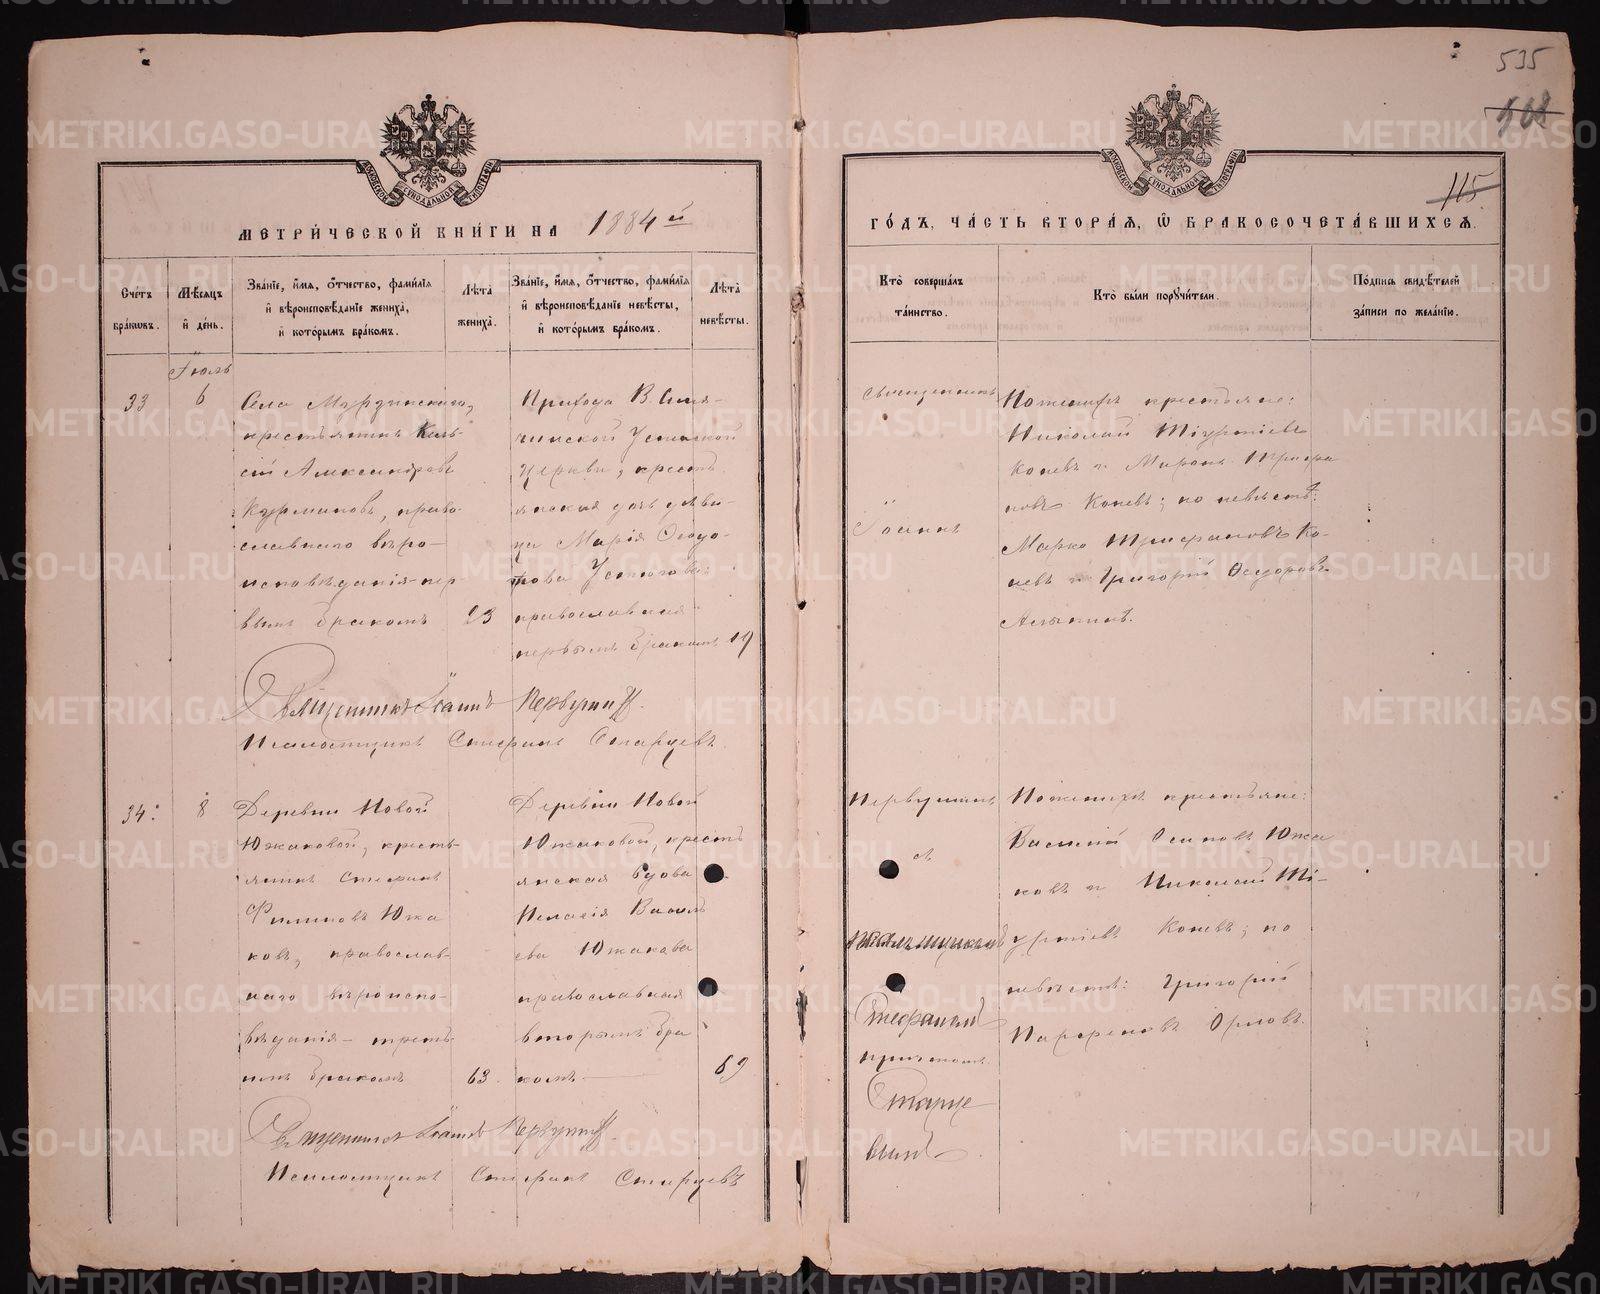 535
115
МЕТРИ́ЧЕСКОЙ КНИ́ГИ НА 1884 й
ГО́ДЪ, ЧА́СТЬ ВТОРА́Я, Ѿ БРАКОСОЧЕТА́ВШИХСЯ.
Сче́тъ бра́ковъ.
Мѣ́сяцъ и҆ де́нь.
Зва́нїе, и҆́мя, ѻ҆́тчество, фами́лїя
и҆ вѣроисповѣ́данїе жениха̀,
и҆ кото́рымъ бра́комъ.
Лѣ́та жениха̀.
Зва́нїе, и҆́мя, ѻ҆́тчество, фами́лїя
и҆ вѣроисповѣ́данїе невѣ́сты,
и҆ кото́рымъ бра́комъ.
Лѣ́та невѣ́сты.
Кто̀ соверша́лъ
та́инство.
Кто̀ бы́ли порꙋчи́тели.
По́дпись свидѣ́телей
за́писи по жела́нїю.
Іюль
33
6
Села Мурзинскаго,
крестьянинъ
Александровъ
право-
славнаго вѣро-
исповѣданія пер-
вымъ бракомъ
23
Прихода В. Синя-
чихинской Успенской
Церкви, кресть-
янская дочь дѣви-
ца Марія Ѳедо-
това Устюгова
православная
первымъ бракомъ
19
Священникъ
Іоаннъ
По женихѣ крестьяне:
Николай Тіуртіевъ
Копевъ и Миронъ Трифа
новъ Копевъ; по невѣстѣ:
Марко Трифановъ Ко-
невъ и Григорій Ѳедоровъ
Священникъ Іоаннъ Первушинъ.
Псаломщикъ Стефанъ Старцевъ.
34.
8
Деревни Новой
Южаковой, кресть-
янинъ Стефанъ
Филиповъ Южа
ковъ, православ-
наго вѣроиспо-
вѣданія – треть-
имъ бракомъ
63.
Деревни Новой
Южаковой, кресть
янская вдова
Пелагія Василь
ева Южакова
православная
вторымъ бра
комъ
69
Первушинъ
съ
Псаломщикомъ
Стефаномъ
Старце
вымъ
По женихѣ крестьяне:
Василій Осиповъ Южа
ковъ и Николай Ті-
уртіевъ Копевъ; по
невѣстѣ: Григорій
Парфеновъ Орловъ.
Священникъ Іоаннъ Первушинъ.
Псаломщикъ Стефанъ Старцевъ
METRIKI.GASO-URAL.RU